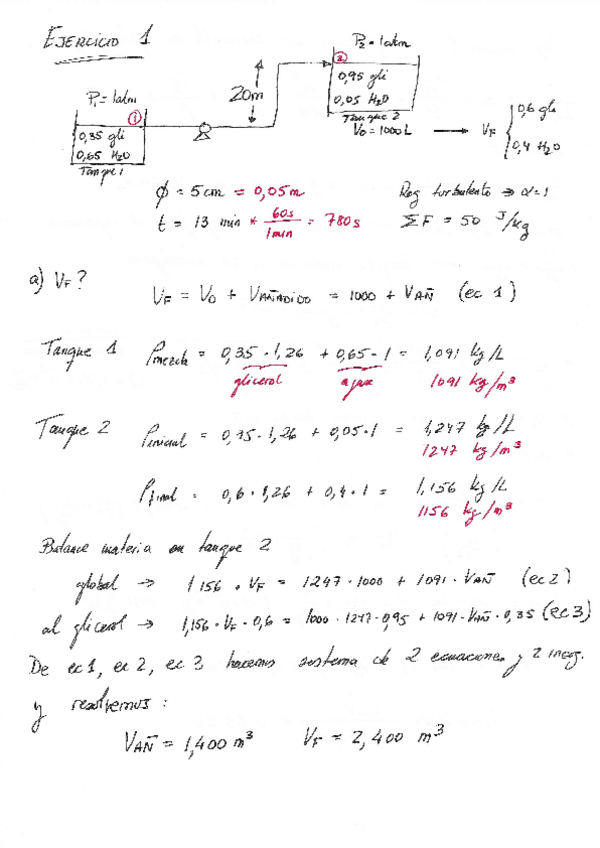 EJERCICIO 1
P2 = 1atm
②
0,95 gli
0,05 H2O
Tanque 2
V0 = 1000L → VF { 0,6 gli
0,4 H2O
20m
P1 = 1atm
①
0,35 gli
0,65 H2O
Tanque 1
φ = 5cm = 0,05m
Reg turbulento ⇒ α=1
t = 13 min * 60s/1min = 780s
ΣF = 50 J/kg
a) VF?
VF = V0 + VAÑADIDO = 1000 + VAÑ (ec 1)
Tanque 1 ρmezcla = 0,35·1,26 + 0,65·1 = 1,091 kg/L
glicerol agua 1091 kg/m³
Tanque 2 ρinicial = 0,95·1,26 + 0,05·1 = 1,247 kg/L
1247 kg/m³
ρfinal = 0,6·1,26 + 0,4·1 = 1,156 kg/L
1156 kg/m³
Balance materia en tanque 2
global → 1156 · VF = 1247·1000 + 1091·VAÑ (ec2)
al glicerol → 1,156·VF·0,6 = 1000·1247·0,95 + 1091·VAÑ·0,35 (ec3)
De ec1, ec 2, ec 3 hacemos sistema de 2 ecuaciones y 2 incog.
y resolvemos:
VAÑ = 1,400 m³ VF = 2,400 m³